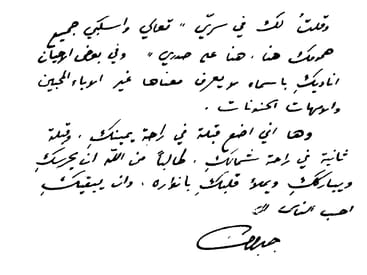 وقلتُ لكِ في سرّي " تعالي واسكبي جميع
همومك هنا، هنا على صدري " وفي بعض الاحيان
اناديكِ باسماء لا يعرف معناها غير الاباء المحبين
والامهات الحنونات .
وها اني اضع قبلة في راحة يمينكِ، وقبلة
ثانية في راحة شمالكِ، طالباً من الله ان يحرسكِ
ويباركك ويملأ قلبكِ بانواره، وان يبقيكِ
احب الناس الى
جبران